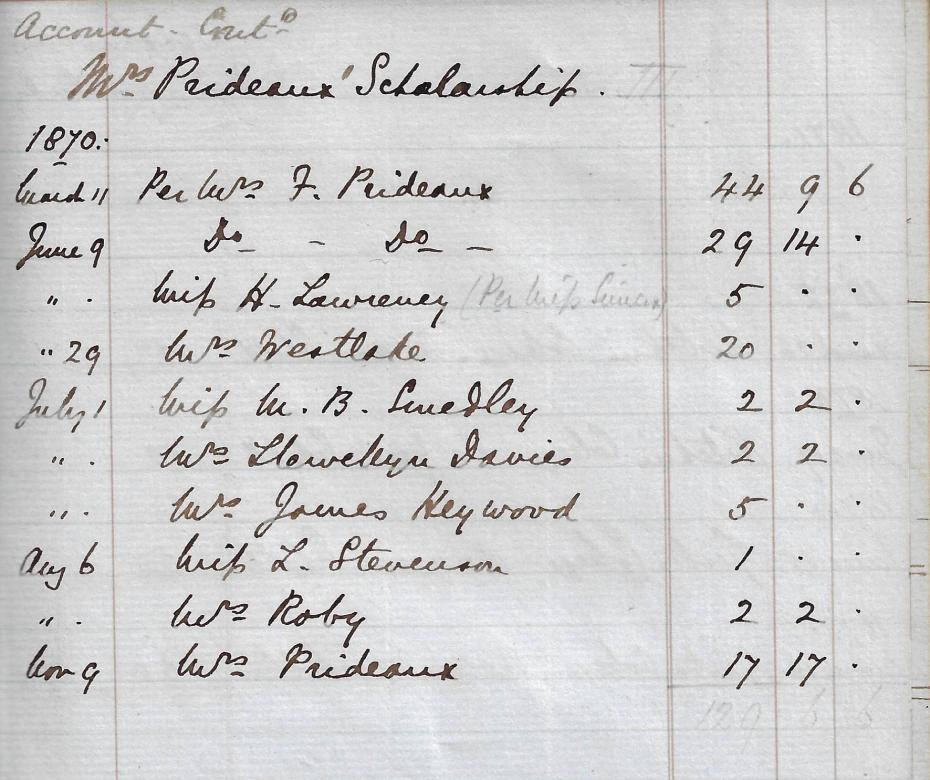 Account - Cont^d
Mrs Prideaux' Scholarship. III
1870.
March 11 Per Mrs F. Prideaux 44 9 6
June 9 Do - Do - 29 14 .
" . Miss H. Lawreney (Per Miss ) 5 . .
" 29 Mrs Westlake 20 . .
July 1 Miss M. B. Smedley 2 2 .
" . Mrs Llewellyn Davies 2 2 .
" . Mrs James Heywood 5 . .
Aug 6 Miss L. Stevenson 1 . .
" . Mrs Roby 2 2 .
Nov 9 Mrs Prideaux 17 17 .
129 6 6